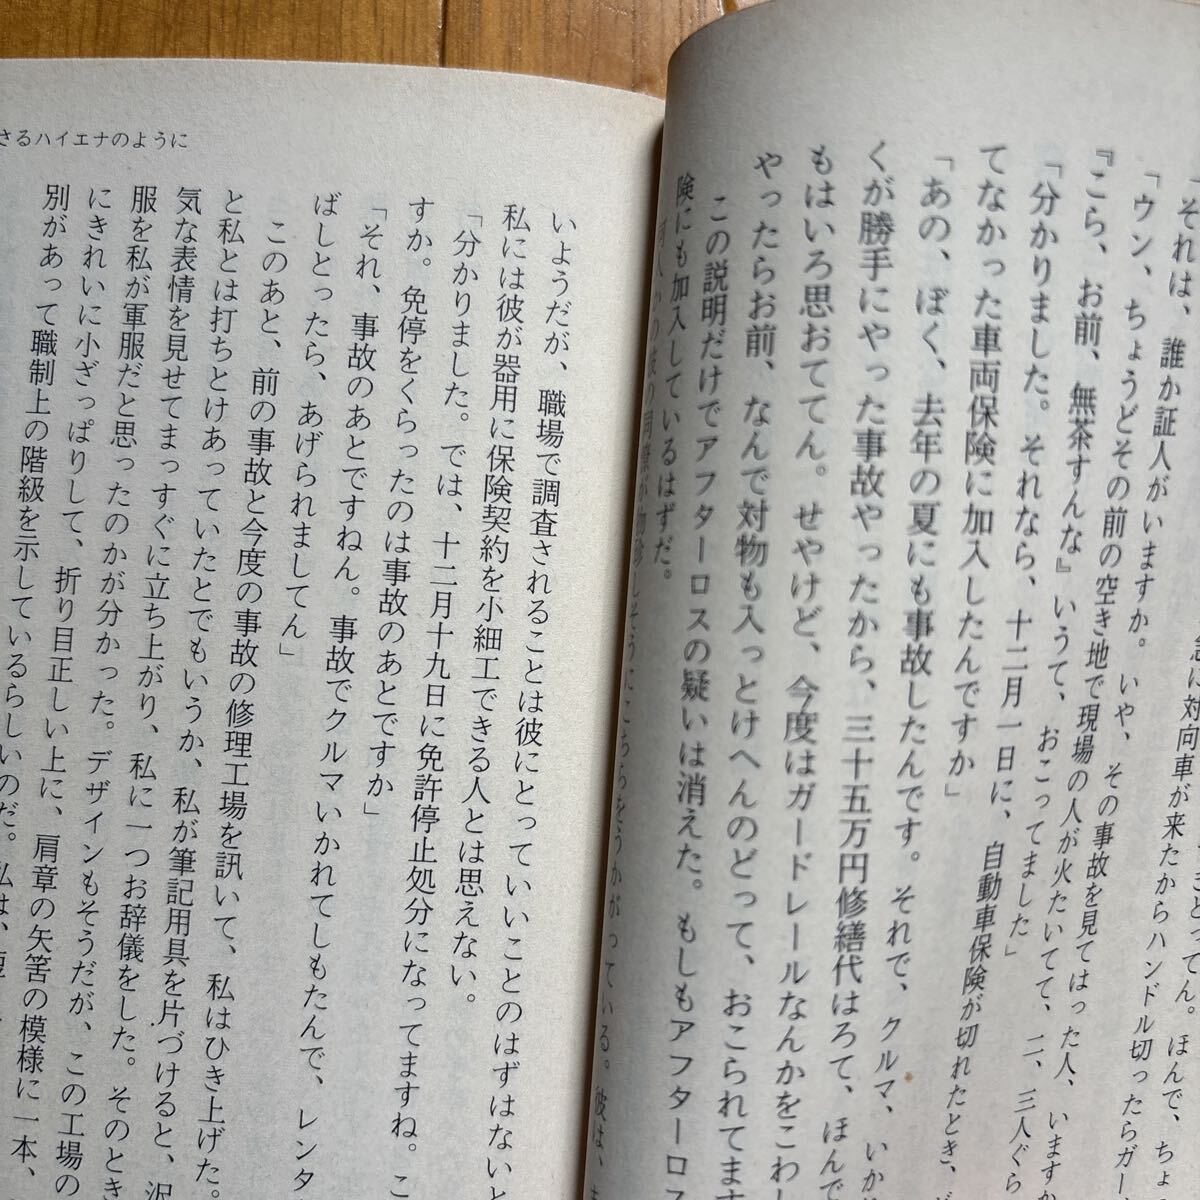 「それは、誰か証人がいますか。いや、その事故を見てはった人、います
「ウン、ちょうどその前の空き地で現場の人が火たいてて、二、三人ぐら
『こら、お前、無茶すんな』いうて、おこってました」
「分かりました。それなら、十二月一日に、自動車保険が切れたとき、
てなかった車両保険に加入したんですか」
「あの、ぼく、去年の夏にも事故したんです。それで、クルマ、いか
くが勝手にやった事故やったから、三十五万円修繕代はろて、ほんで
もはいろ思おててん。せやけど、今度はガードレールなんかをこわし
やったらお前、なんで対物も入っとけへんのどって、おこられてます
この説明だけでアフターロスの疑いは消えた。もしもアフターロス
険にも加入しているはずだ。
さるハイエナのように
いようだが、職場で調査されることは彼にとっていいことのはずはないと
私には彼が器用に保険契約を小細工できる人とは思えない。
「分かりました。では、十二月十九日に免許停止処分になってますね。こ
すか。免停をくらったのは事故のあとですか」
「それ、事故のあとですねん。事故でクルマいかれてしもたんで、レンタ
ばしとったら、あげられましてん」
このあと、前の事故と今度の事故の修理工場を訊いて、私はひき上げた。
と私とは打ちとけあっていたとでもいうか、私が筆記用具を片づけると、沢
気な表情を見せてまっすぐに立ち上がり、私に一つお辞儀をした。そのとき
服を私が軍服だと思ったのかが分かった。デザインもそうだが、この工場の
にきれいに小ざっぱりして、折り目正しい上に、肩章の矢筈の模様に一本、
別があって職制上の階級を示しているらしいのだ。私は、